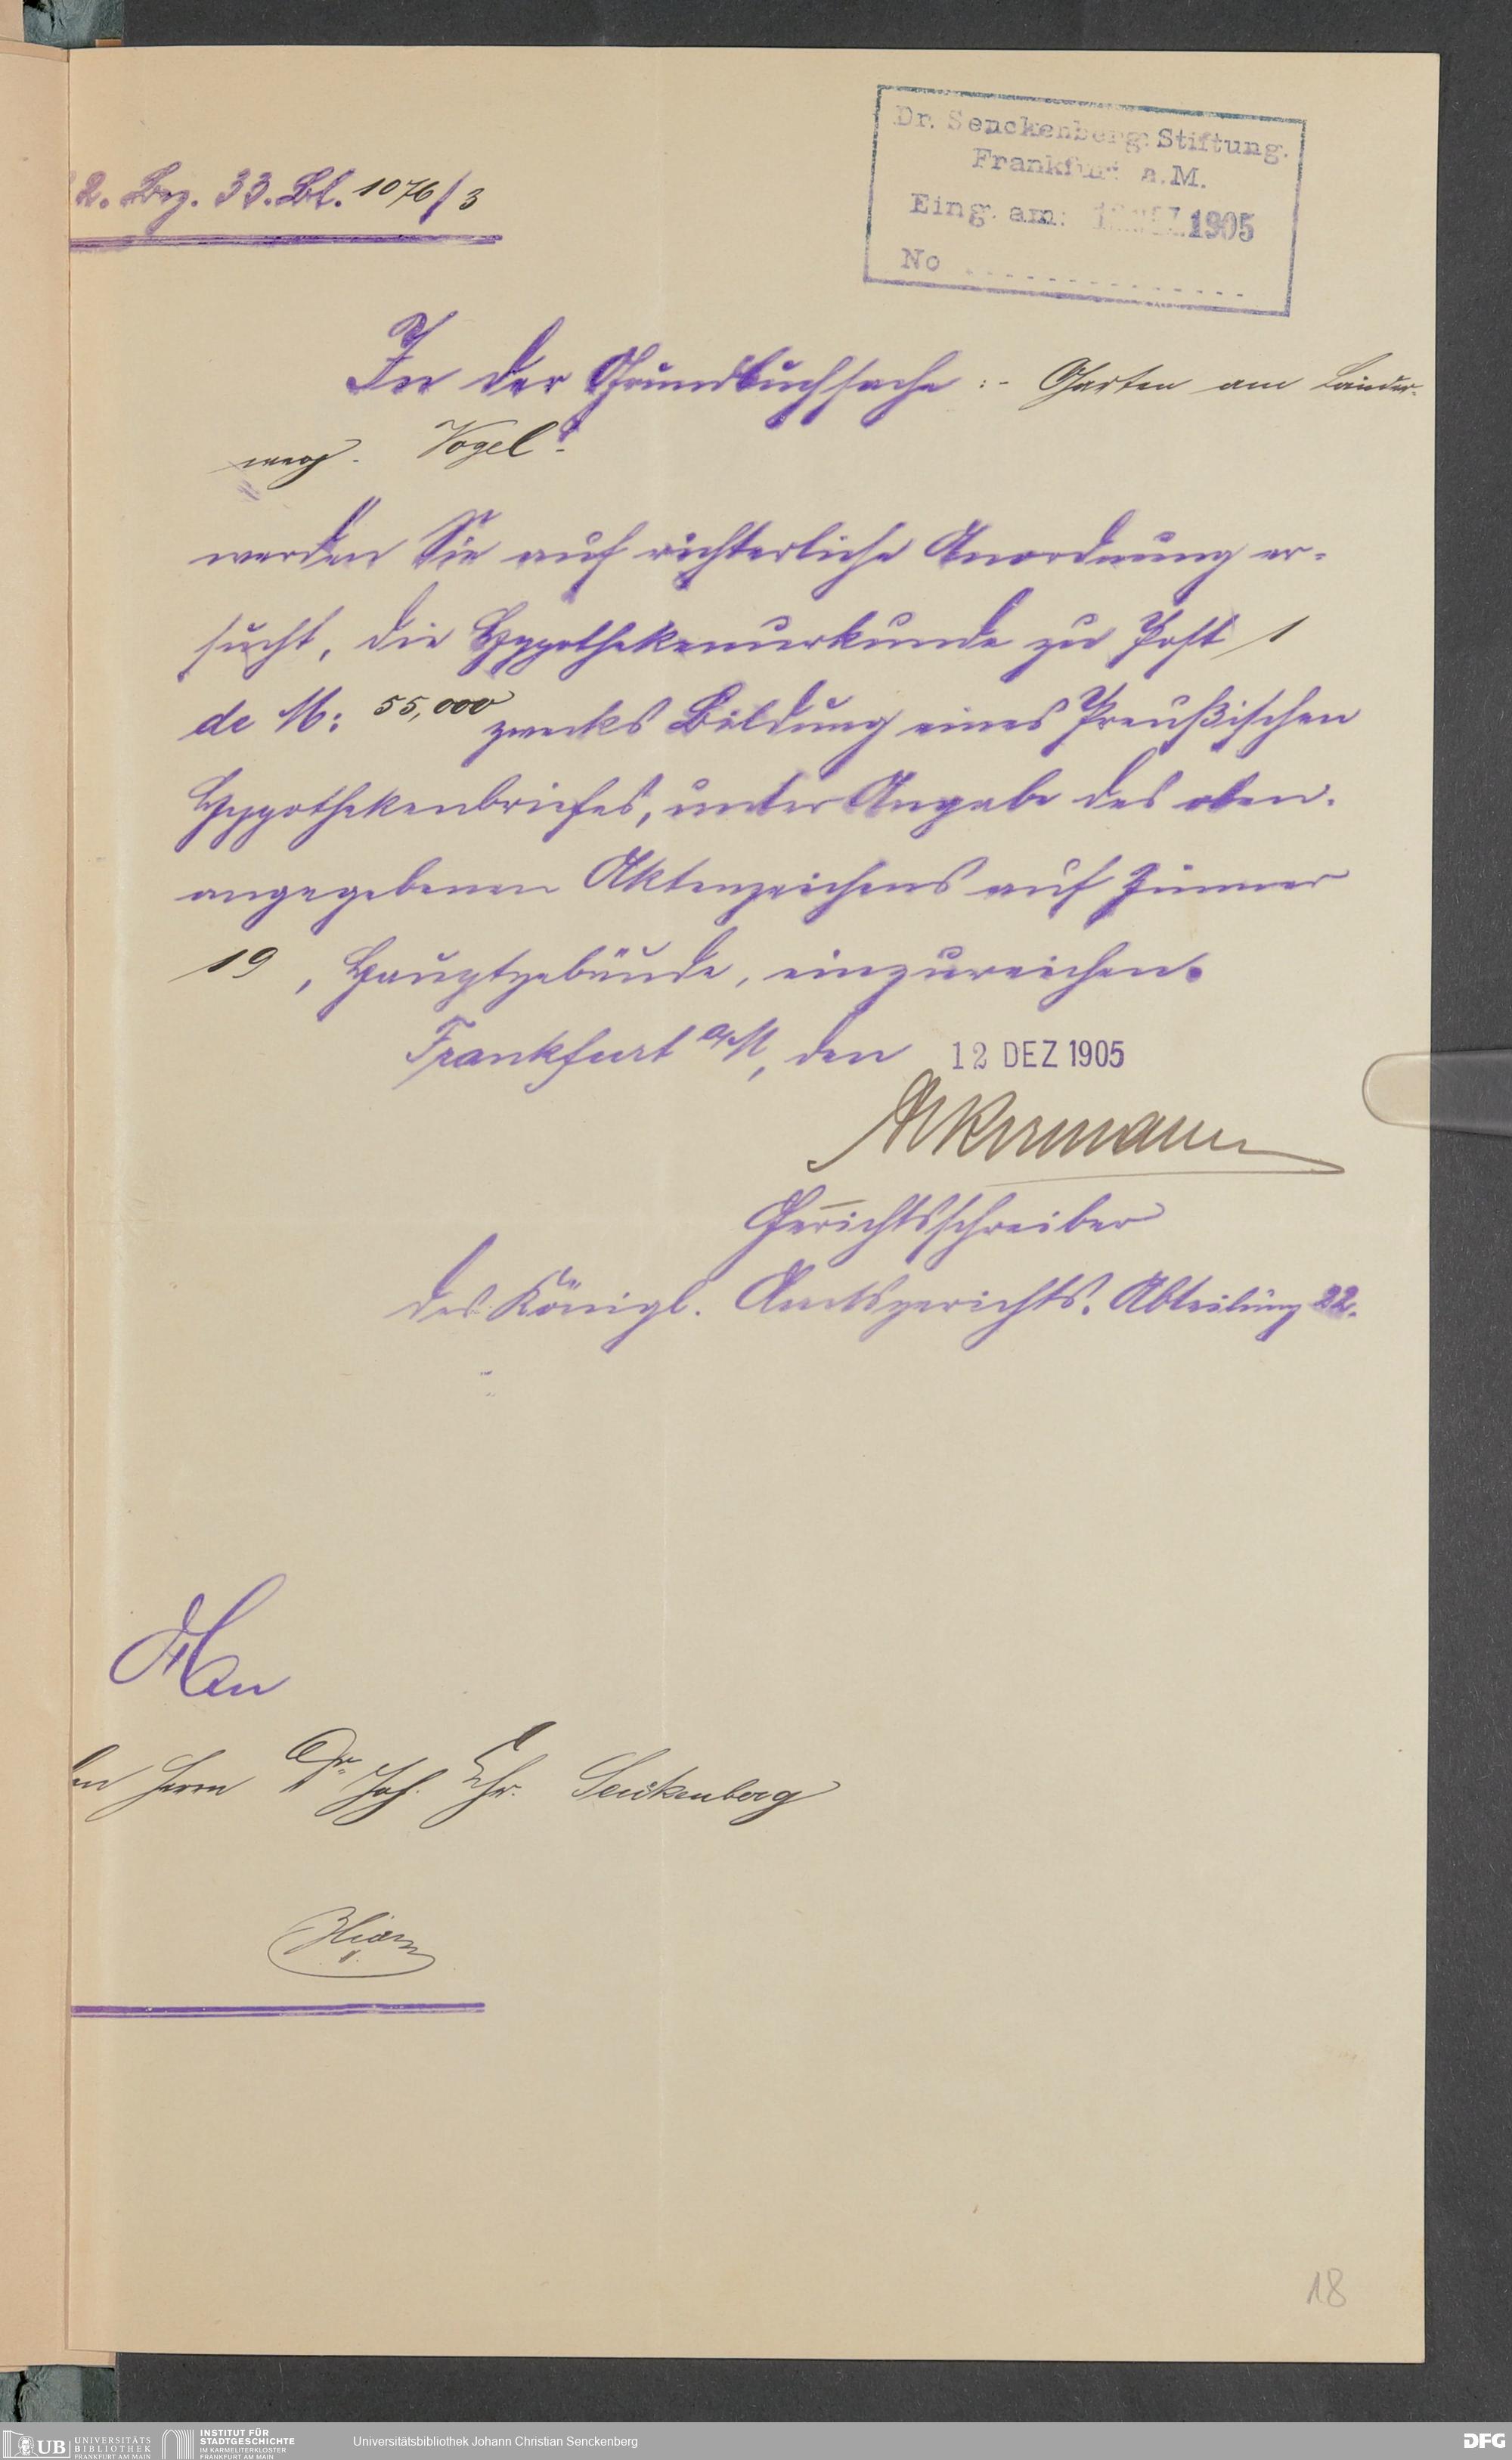 2. Bez. 33. Bl. 1076/3
Dr. Senckenberg. Stiftung.
Frankfurt a. M.
Eing. am: 1905
No
In der Grundbuchsache :- Garten am
weg. Vogel.
werden Sie auf richterliche Anordnung er-
sucht, die Hypothekenurkunde zu Post 1
de M: 55,000 zwecks Bildung eines Preußischen
Hypothekenbriefes, unter Angabe des oben-
angegebenen Aktenzeichens auf Zimmer
19, Hauptgebäude, einzureichen.
Frankfurt a/M, den 12 DEZ 1905
Ackermann
Gerichtsschreiber
des Königl. Amtsgerichts. Abteilung 22.
An
den Herrn Dr. Joh. Chr. Senckenberg
Hier
18
UB UNIVERSITÄTS
BIBLIOTHEK
FRANKFURT AM MAIN
INSTITUT FÜR
STADTGESCHICHTE
IM KARMELITERKLOSTER
FRANKFURT AM MAIN
Universitätsbibliothek Johann Christian Senckenberg
DFG